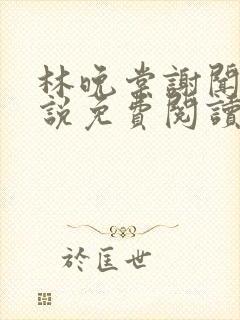 林晚棠謝聞
說免費閱讀
於匡世